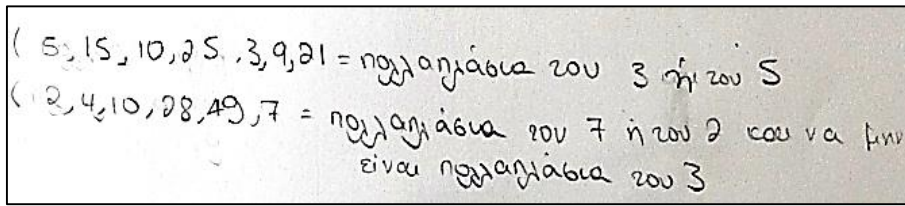 ( 5, 15, 10, 25, 3, 9, 21 = πολλαπλάσια του 3 ή του 5
( 2, 4, 10, 28, 49, 7 = πολλαπλάσια του 7 ή του 2 και να μην
είναι πολλαπλάσια του 3